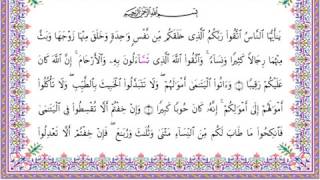 بِسْمِ اللَّهِ الرَّحْمَٰنِ الرَّحِيمِ
يَٰٓأَيُّهَا النَّاسُ اتَّقُوا رَبَّكُمُ الَّذِي خَلَقَكُم مِّن نَّفْسٍ وَٰحِدَةٍ وَخَلَقَ مِنْهَا زَوْجَهَا وَبَثَّ
مِنْهُمَا رِجَالًا كَثِيرًا وَنِسَآءً ۚ وَاتَّقُوا اللَّهَ الَّذِي تَسَّآءَلُونَ بِهِۦ وَالْأَرْحَامَ ۚ إِنَّ اللَّهَ كَانَ
عَلَيْكُمْ رَقِيبًا ۝١ وَءَاتُوا الْيَتَٰمَىٰٓ أَمْوَٰلَهُمْ ۖ وَلَا تَتَبَدَّلُوا الْخَبِيثَ بِالطَّيِّبِ ۖ وَلَا تَأْكُلُوٓا
أَمْوَٰلَهُمْ إِلَىٰٓ أَمْوَٰلِكُمْ ۚ إِنَّهُۥ كَانَ حُوبًا كَبِيرًا ۝٢ وَإِنْ خِفْتُمْ أَلَّا تُقْسِطُوا فِي الْيَتَٰمَىٰ
فَانكِحُوا مَا طَابَ لَكُم مِّنَ النِّسَآءِ مَثْنَىٰ وَثُلَٰثَ وَرُبَٰعَ ۖ فَإِنْ خِفْتُمْ أَلَّا تَعْدِلُوا